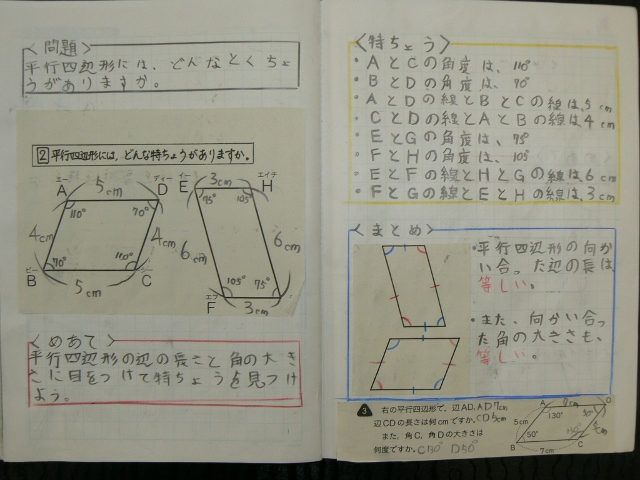 〈問題〉
平行四辺形には、どんなとくちょ
うがありますか。
2 平行四辺形には、どんな特ちょうがありますか。
エー A 5cm ディー D
110° 70°
4cm 4cm
70° 110°
ビー B 5cm シー C
イー E 3cm エイチ H
75° 105°
6cm 6cm
105° 75°
エフ F 3cm
〈めあて〉
平行四辺形の辺の長さと角の大き
さに目をつけて特ちょうを見つけ
よう。
〈特ちょう〉
・AとCの角度は、110°
・BとDの角度は、70°
・AとDの線とBとCの線は、5cm
・CとDの線とAとBの線は、4cm
・EとGの角度は、75°
・FとHの角度は、105°
・EとFの線とHとGの線は、6cm
・FとGの線とEとHの線は、3cm
〈まとめ〉
・平行四辺形の向か
い合った辺の長は、
等しい。
・また、向かい合っ
た角の大きさも、
等しい。
3 右の平行四辺形で、辺AD, AD7cm
辺CDの長さは何cmですか。CD5cm
また、角C、角Dの大きさは
何度ですか。
A 7cm D
130°
5cm 5cm
50°
B 7cm C